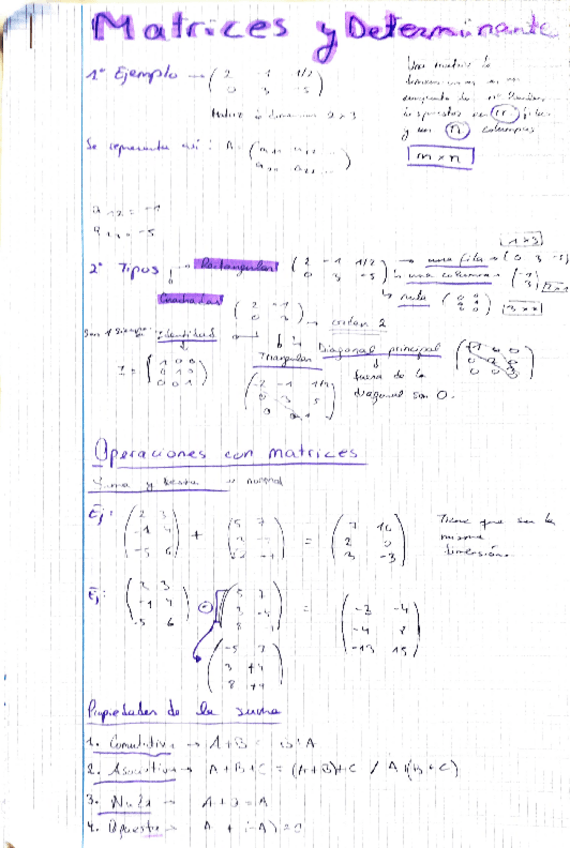 Matrices y Determinante
1º Ejemplo → ( 2 -1 1/2
0 3 -5 )
Matriz de dimension 2 x 3
Una matriz de
dimension m x n
conjunto de nº
dispuestos en m filas
y en n columnas
m x n
Se representa así: A =
a 12 = -1
2º Tipos
Rectangular ( 2 -1 1/2
0 3 -5 )
→ una fila → ( 0 3 -5 ) 1 x 3
↳ una columna → ( -1
3 ) 2 x 1
↳ nula ( 0 0
0 0
0 0 ) 3 x
Cuadrada ( 2 -1
0 3 ) → orden 2
Identidad
I = ( 1 0 0
0 1 0
0 0 1 )
Triangular
( 2 -1 1/2
0 3 5
0 0 )
Diagonal principal
fuera de la
diagonal son 0.
Operaciones con matrices
Suma y resta → normal
Ej: ( 2 3
-1 4
-5 6 ) + ( 5 7
3
8 ) = ( 7 10
2 0
3 -3 )
Tiene que ser la
misma
dimensión
Ej: ( 2 3
-1 4
-5 6 ) - ( 5 7
3 -4
8 ) = ( -3 -4
-4 8
-13 15 )
( -5 7
3 +4
8 )
Propiedades de la suma
1. Conmutativa → A+B = B+A
2. Asociativa → A+B+C = (A+B)+C / A+(B+C)
3. Nula → = A
4. Opuesta → A + (-A) = 0